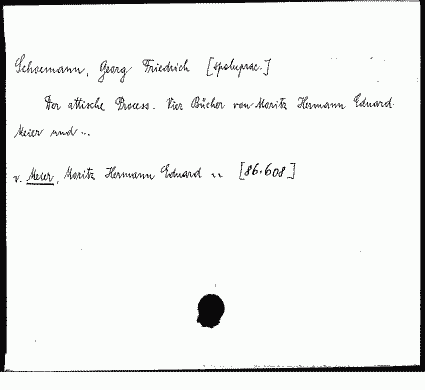 Schoemann, Georg Friedrich [spoluprac.]
Der attische Process. Vier Bücher von Moritz Hermann Eduard
Meier und ...
v. Meier, Moritz Hermann Eduard [86.608]